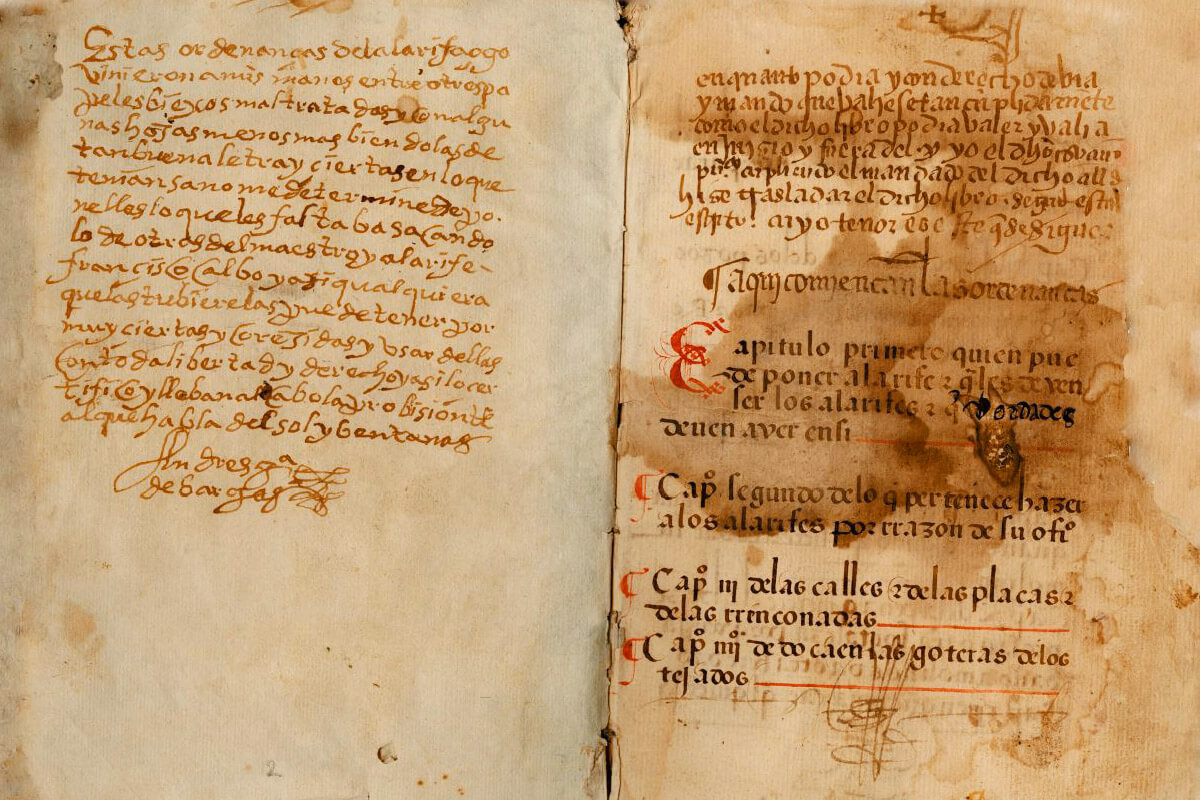 Estas ordenanças del alarifadgo
vinieron a mis manos entre otros pa
peles biejos maltratadas y con algu
nas hojas menos mas biendolas de
tan buena letra y ciertas en lo que
tenian sano me determine de po.
nelles lo que les faltaba sacando
lo de otras del maestro y alarife
francisco calbo y asi qualquiera
que las tubiere las puede tener por
muy ciertas y coregidas y usar dellas
con toda libertad y derecho y asi lo cer
tifico y lleban al cabo la probision
al que habla del sol y bentanas
Andres gª
de bargas
2
en quanto podia y con derecho debia
y mando que vala
como el dicho libro podia valer y valia
en juyzio y fuera del y yo el dho
cūpliendo el mandado del dicho all
hize trasladar el dicho libro segūd esta
escrto. cuyo tenor es este q̄ se sigue
¶ aqui comiençan las ordenanças
Capitulo primero quien pue
de poner alarife ⁊ q̄les deven
ser los alarifes ⁊ q̄ bordades
deven aver en si
¶ Capº segundo de lo q̄ pertenece hazer
a los alarifes por rrazon de su ofiº
¶ Capº iii de las calles ⁊ de las plaças ⁊
de las rrinconadas
¶ Capº iiiiº de do caen las goteras de los
tejados